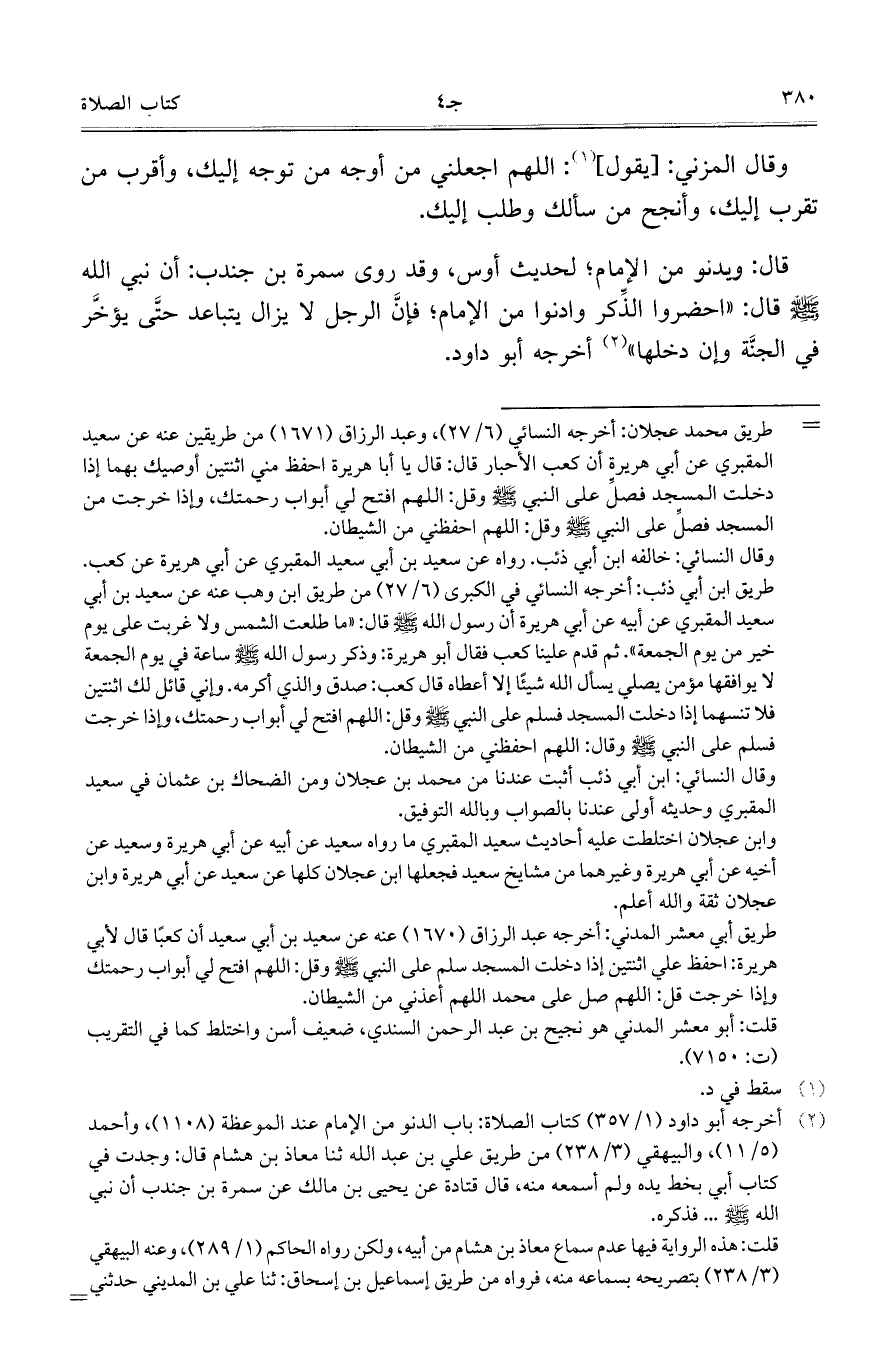 ٣٨٠
جـ٤
كتاب الصلاة
وقال المزني: [يقول](١): اللهم اجعلني من أوجه من توجه إليك، وأقرب من
تقرب إليك، وأنجح من سألك وطلب إليك.
قال: ويدنو من الإمام؛ لحديث أوس، وقد روى سمرة بن جندب: أن نبي الله
ﷺ قال: «احضروا الذِّكر وادنوا من الإمام؛ فإنَّ الرجل لا يزال يتباعد حتَّى يؤخَّر
في الجنَّة وإن دخلها»(٢) أخرجه أبو داود.
= طريق محمد عجلان: أخرجه النسائي (٦/ ٢٧)، وعبد الرزاق (١٦٧١) من طريقين عنه عن سعيد
المقبري عن أبي هريرة أن كعب الأحبار قال: قال يا أبا هريرة احفظ مني اثنتين أوصيك بهما إذا
دخلت المسجد فصلِّ على النبي ﷺ وقل: اللهم افتح لي أبواب رحمتك، وإذا خرجت من
المسجد فصلِّ على النبي ﷺ وقل: اللهم احفظني من الشيطان.
وقال النسائي: خالفه ابن أبي ذئب. رواه عن سعيد بن أبي سعيد المقبري عن أبي هريرة عن كعب.
طريق ابن أبي ذئب: أخرجه النسائي في الكبرى (٦/ ٢٧) من طريق ابن وهب عنه عن سعيد بن أبي
سعيد المقبري عن أبيه عن أبي هريرة أن رسول الله ﷺ قال: «ما طلعت الشمس ولا غربت على يوم
خير من يوم الجمعة». ثم قدم علينا كعب فقال أبو هريرة: وذكر رسول الله ﷺ ساعة في يوم الجمعة
لا يوافقها مؤمن يصلي يسأل الله شيئًا إلا أعطاه قال كعب: صدق والذي أكرمه. وإني قائل لك اثنتين
فلا تنسهما إذا دخلت المسجد فسلم على النبي ﷺ وقل: اللهم افتح لي أبواب رحمتك، وإذا خرجت
فسلم على النبي ﷺ وقال: اللهم احفظني من الشيطان.
وقال النسائي: ابن أبي ذئب أثبت عندنا من محمد بن عجلان ومن الضحاك بن عثمان في سعيد
المقبري وحديثه أولى عندنا بالصواب وبالله التوفيق.
وابن عجلان اختلطت عليه أحاديث سعيد المقبري ما رواه سعيد عن أبيه عن أبي هريرة وسعيد عن
أخيه عن أبي هريرة وغيرهما من مشايخ سعيد فجعلها ابن عجلان كلها عن سعيد عن أبي هريرة وابن
عجلان ثقة والله أعلم.
طريق أبي معشر المدني: أخرجه عبد الرزاق (١٦٧٠) عنه عن سعيد بن أبي سعيد أن كعبًا قال لأبي
هريرة: احفظ علي اثنتين إذا دخلت المسجد سلم على النبي ﷺ وقل: اللهم افتح لي أبواب رحمتك
وإذا خرجت قل: اللهم صل على محمد اللهم أعذني من الشيطان.
قلت: أبو معشر المدني هو نجيح بن عبد الرحمن السندي، ضعيف أسن واختلط كما في التقريب
(ت: ٧١٥٠).
(١) سقط في د.
(٢) أخرجه أبو داود (١/ ٣٥٧) كتاب الصلاة: باب الدنو من الإمام عند الموعظة (١١٠٨)، وأحمد
(٥/ ١١)، والبيهقي (٣/ ٢٣٨) من طريق علي بن عبد الله ثنا معاذ بن هشام قال: وجدت في
كتاب أبي بخط يده ولم أسمعه منه، قال قتادة عن يحيى بن مالك عن سمرة بن جندب أن نبي
الله ﷺ ... فذكره.
قلت: هذه الرواية فيها عدم سماع معاذ بن هشام من أبيه، ولكن رواه الحاكم (١/ ٢٨٩)، وعنه البيهقي
(٣/ ٢٣٨) بتصريحه بسماعه منه، فرواه من طريق إسماعيل بن إسحاق: ثنا علي بن المديني حدثني =